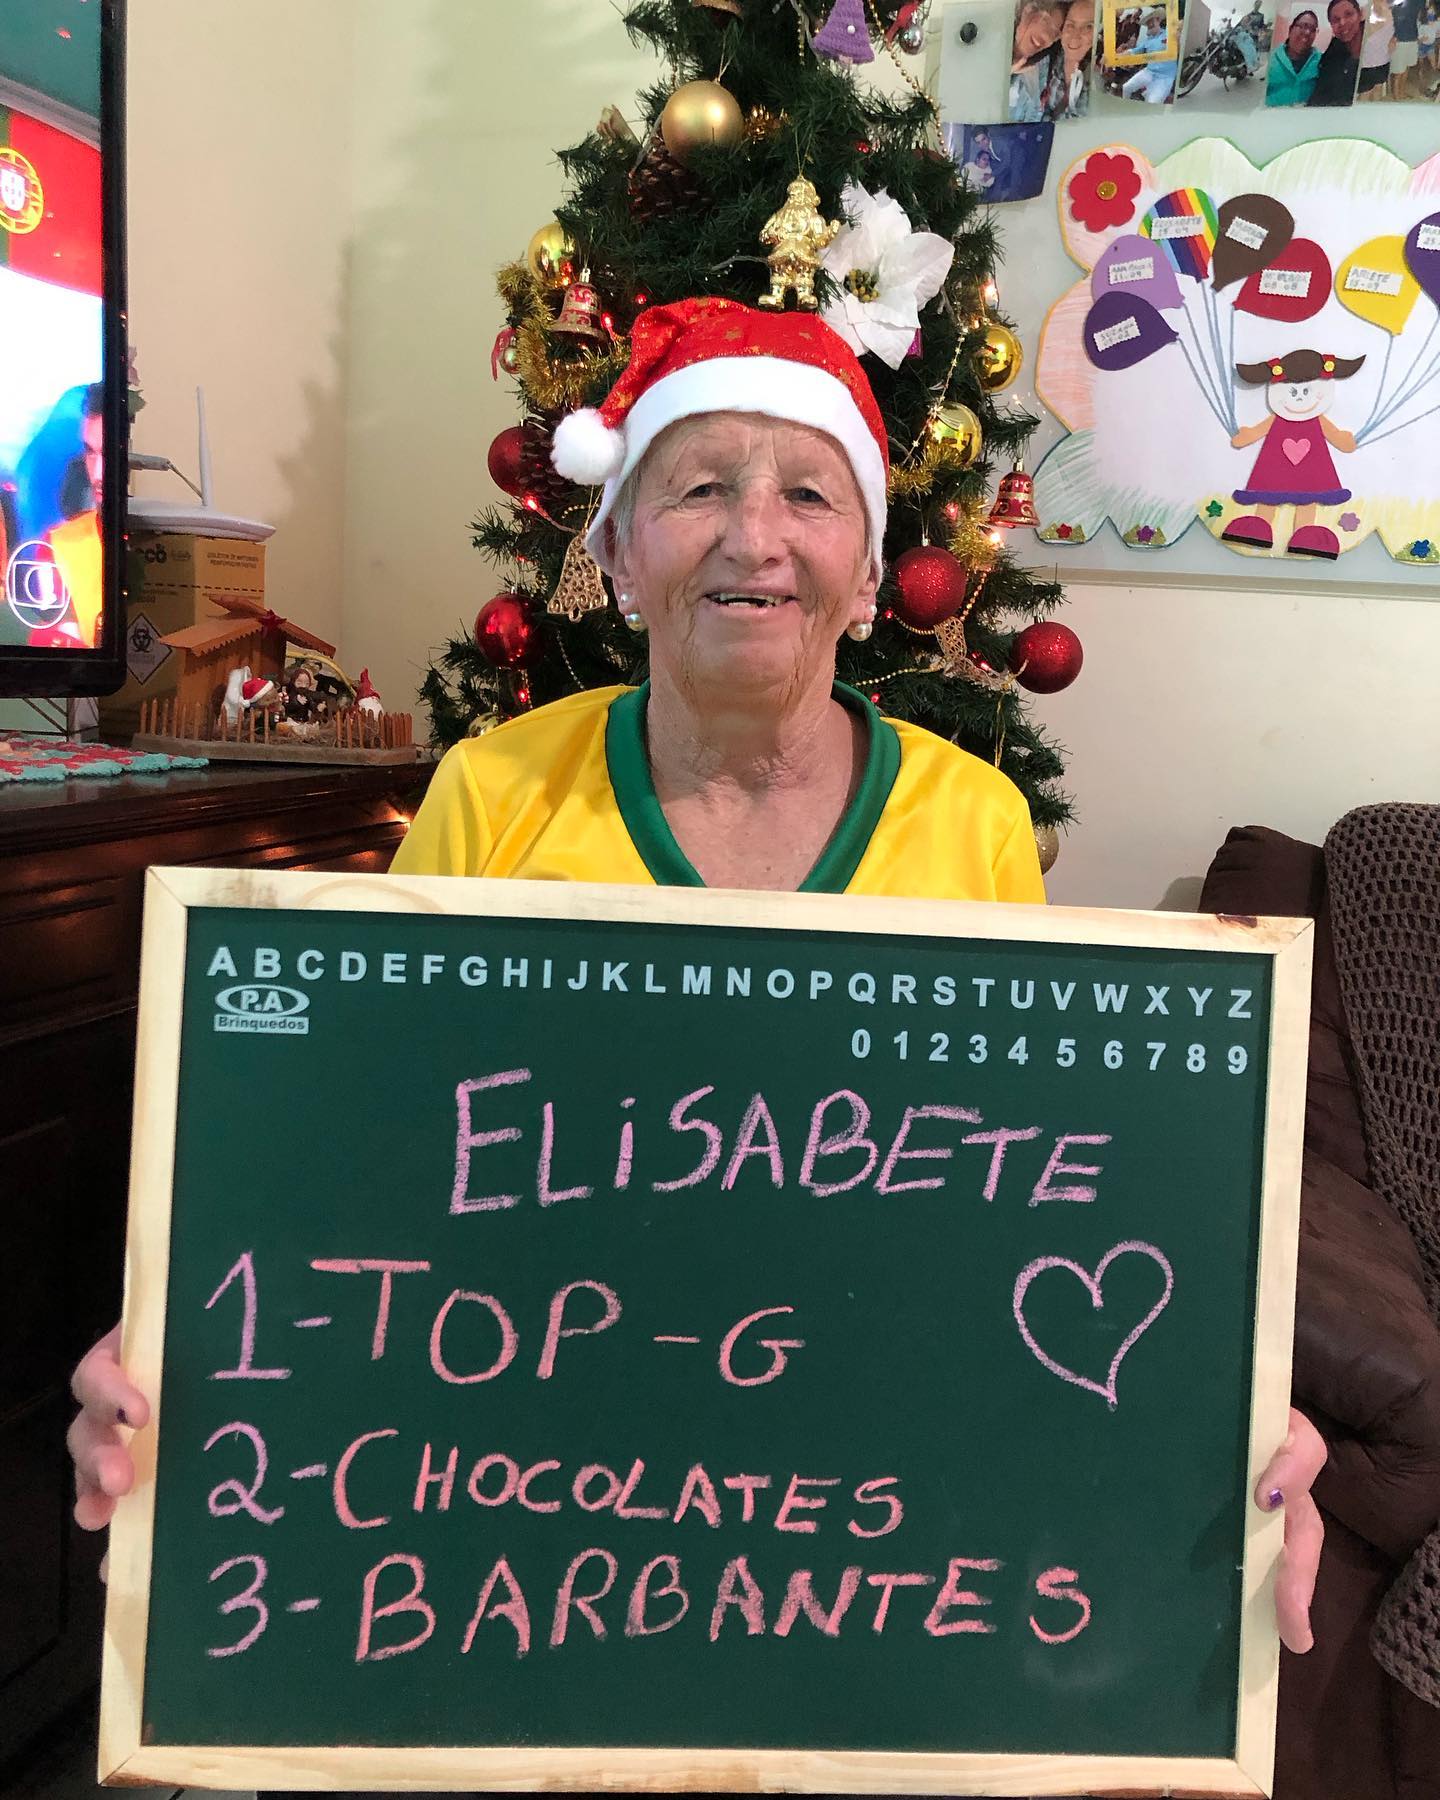 ELISABETE
15-09
ABCDEFGHIJKLMNOPQRSTUVWXYZ
P.A
Brinquedos
0123456789
ELiSABETE
1-TOP-G
2-CHOCOLATES
3-BARBANTES